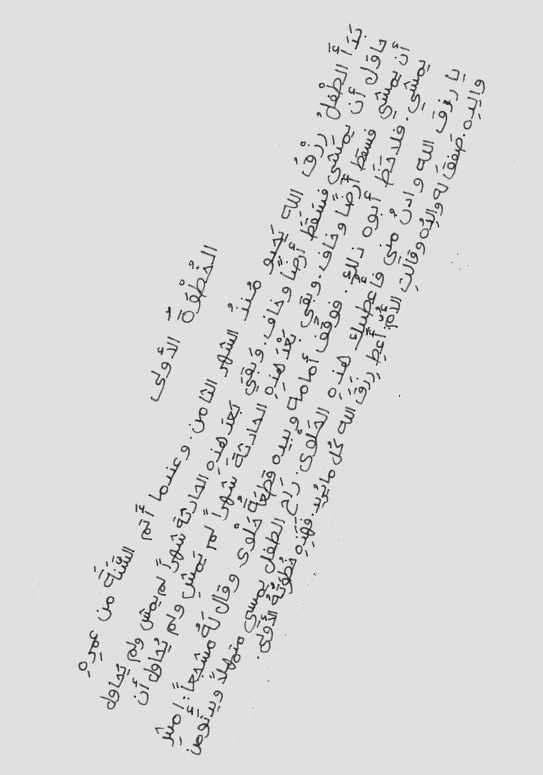 الخُطْوَةُ الأولى
بَدَأَ الطِّفْلُ رِزْقُ الله يَحْبو مُنْذُ الشهر الثامن. وعندما أتَم السَّنَةَ من عمرِهِ
حاول أن يمشي فسَقَطَ أرْضًا وخاف. وَبَقِيَ بَعْدَ هذه الحادثة شهراً لم يمش ولم يُحاول
أن يمشي فسقط أرضاً وخاف. وبقي بَعْدَ هذِهِ الحادثة شَهْراً لم يَمْشِ ولم يُحاول أن
يمشي. فلاحَظَ أبوه ذلك. فوقف أمامه وبيده قِطعَةُ حَلْوى وقال لَهُ مشجعاً: امشِ
يا رزق الله وادنُ مني فأعطيك هذه الحَلْوى. رَاحَ الطفل يمشي متمهلاً ويدنو من
والِدِه. صَفَّقَ لَه والِدُه وقالَتِ الأمُّ: أَعطِ رِزْقَ الله كُل مايُريد. فهَذِهِ خُطْوَتُهُ الأولى.